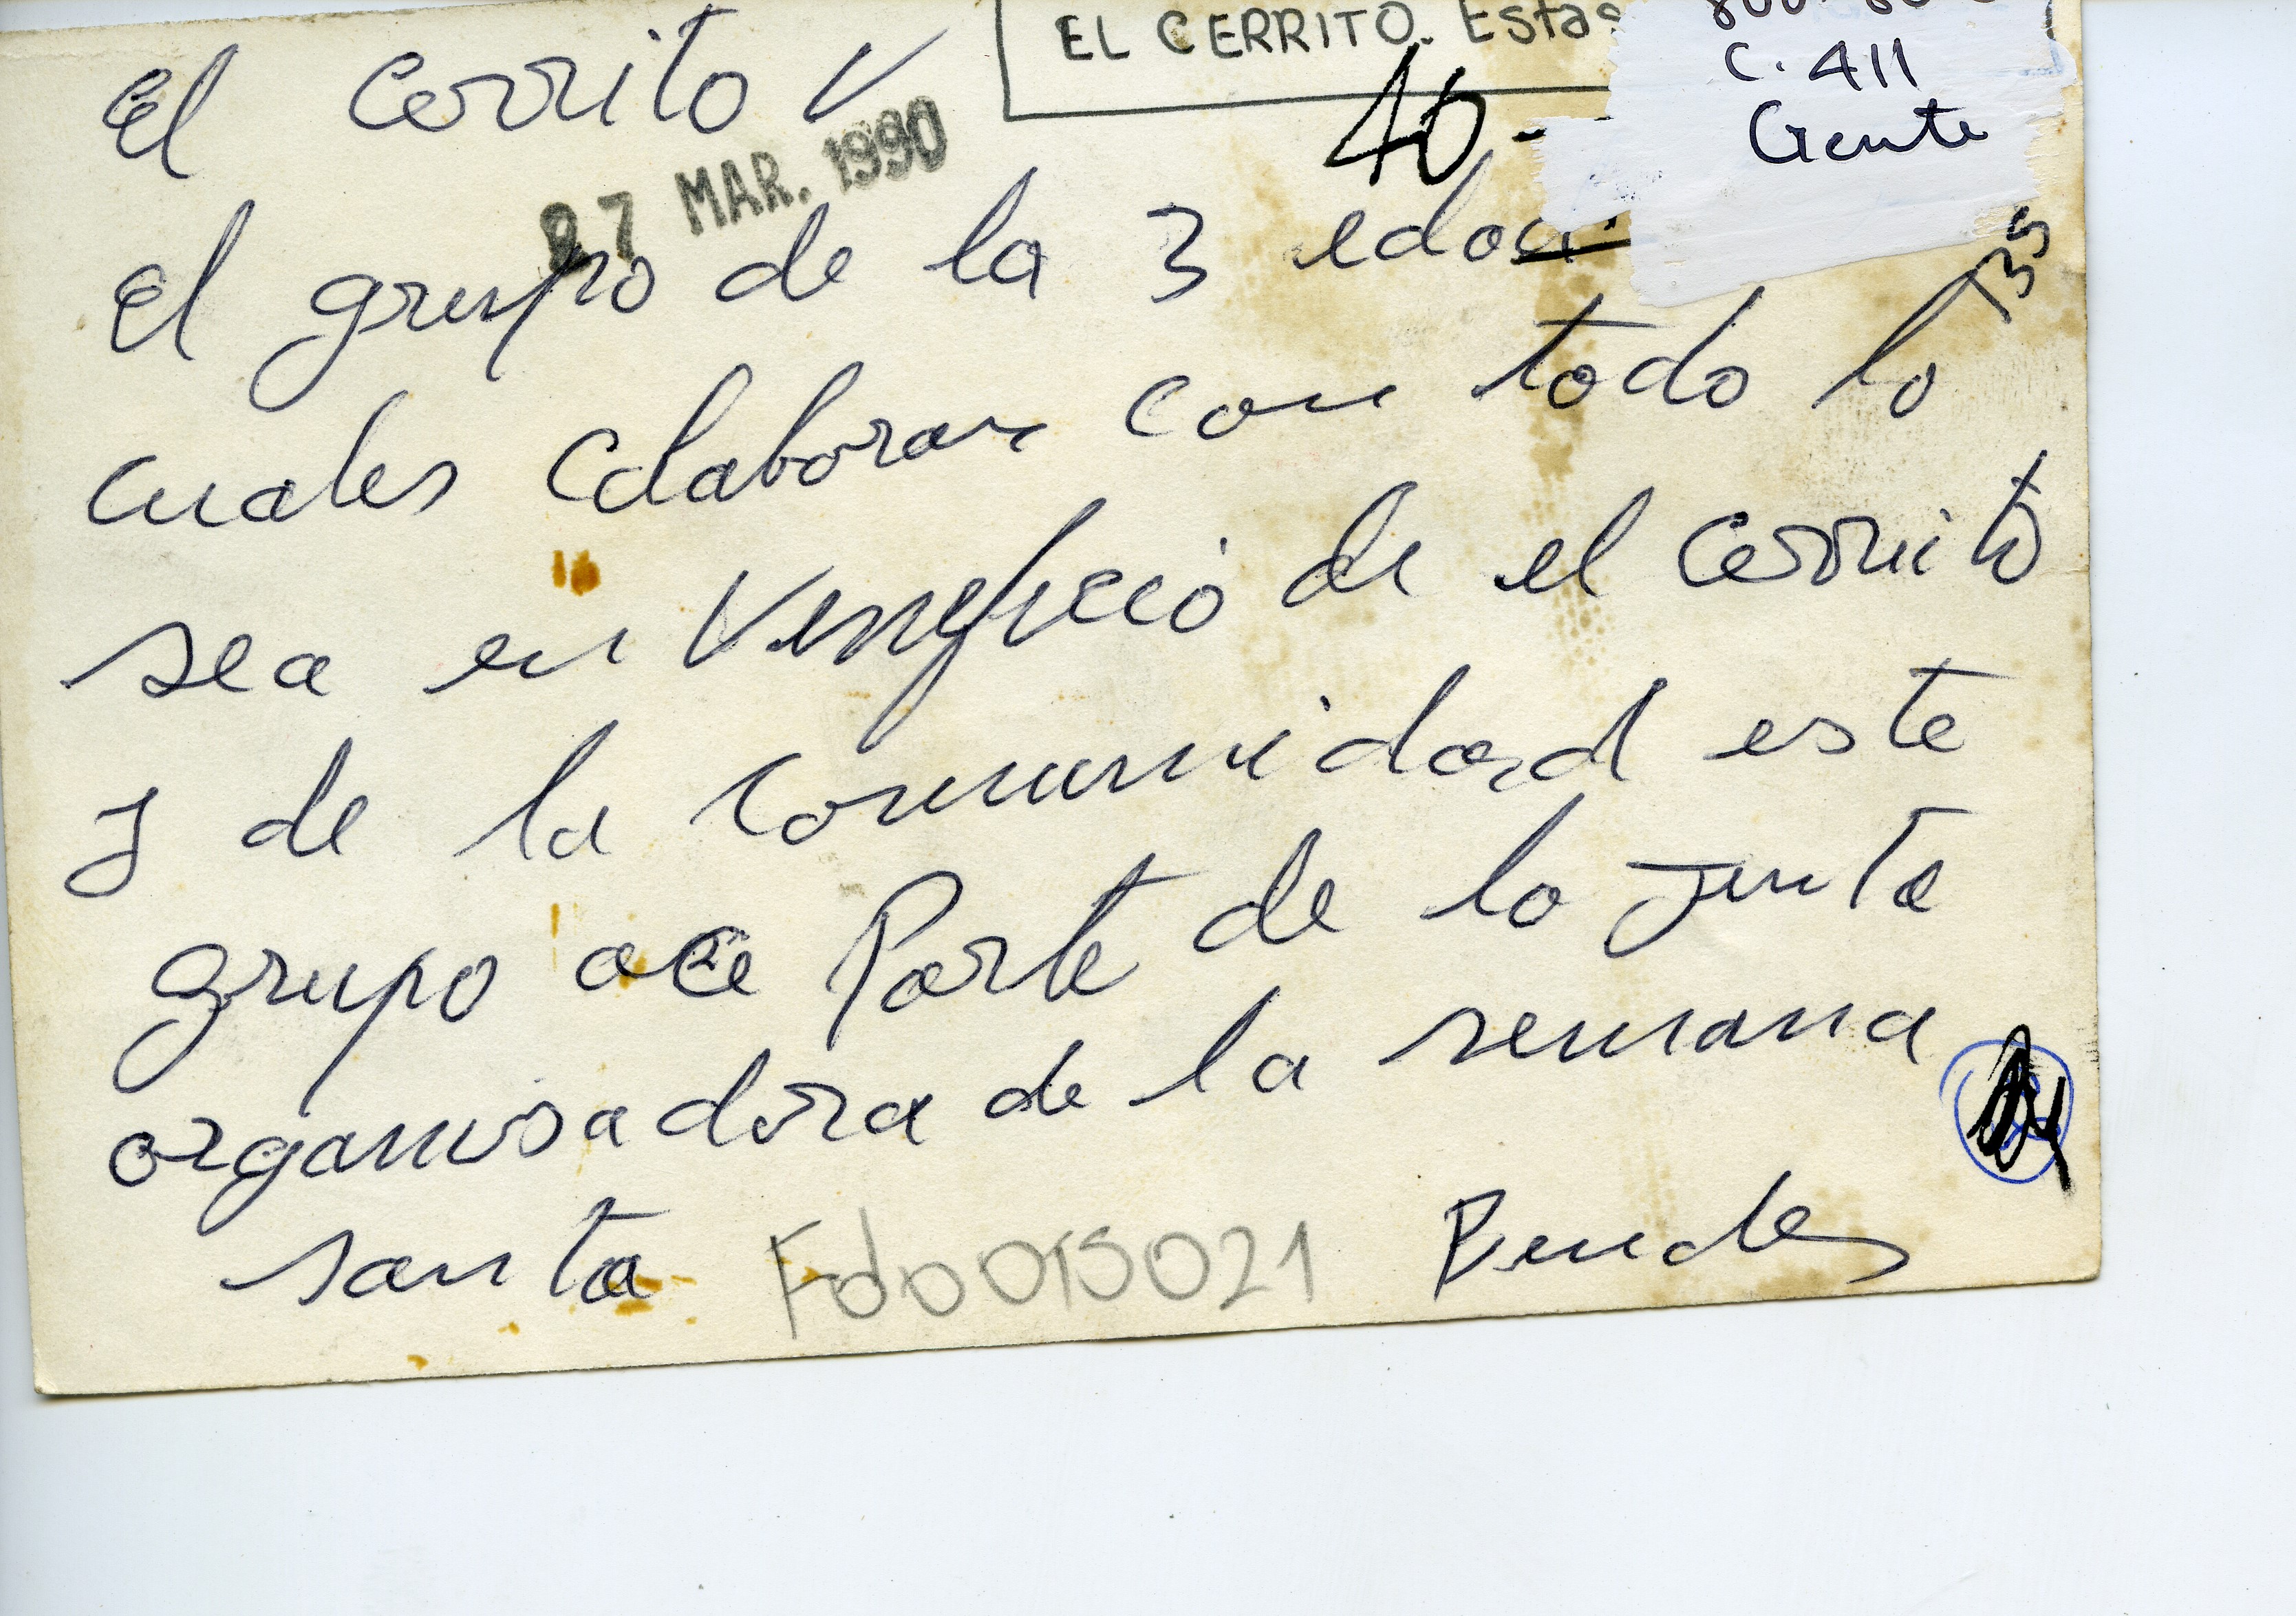 EL CERRITO. Estas
C. 411
Gente
El Cerrito V
27 MAR. 1990
40-
El grupo de la 3 edad
135
cuales colaboran con todo lo
sea en veneficio de el Cerrito
y de la comunidad este
grupo ace Parte de la junta
organisadora de la semana
santa
Fdo 015021